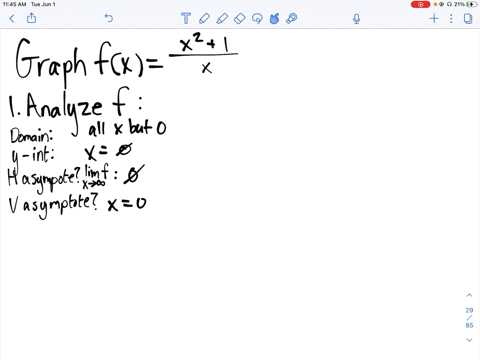 11:45 AM Tue Jun 1
21%
Graph f(x) = x² + 1 / x
1. Analyze f :
Domain: all x but 0
y-int: x = ∅
H asympote? lim f x→∞ : ∅
V asymptote? x = 0
29
/
85